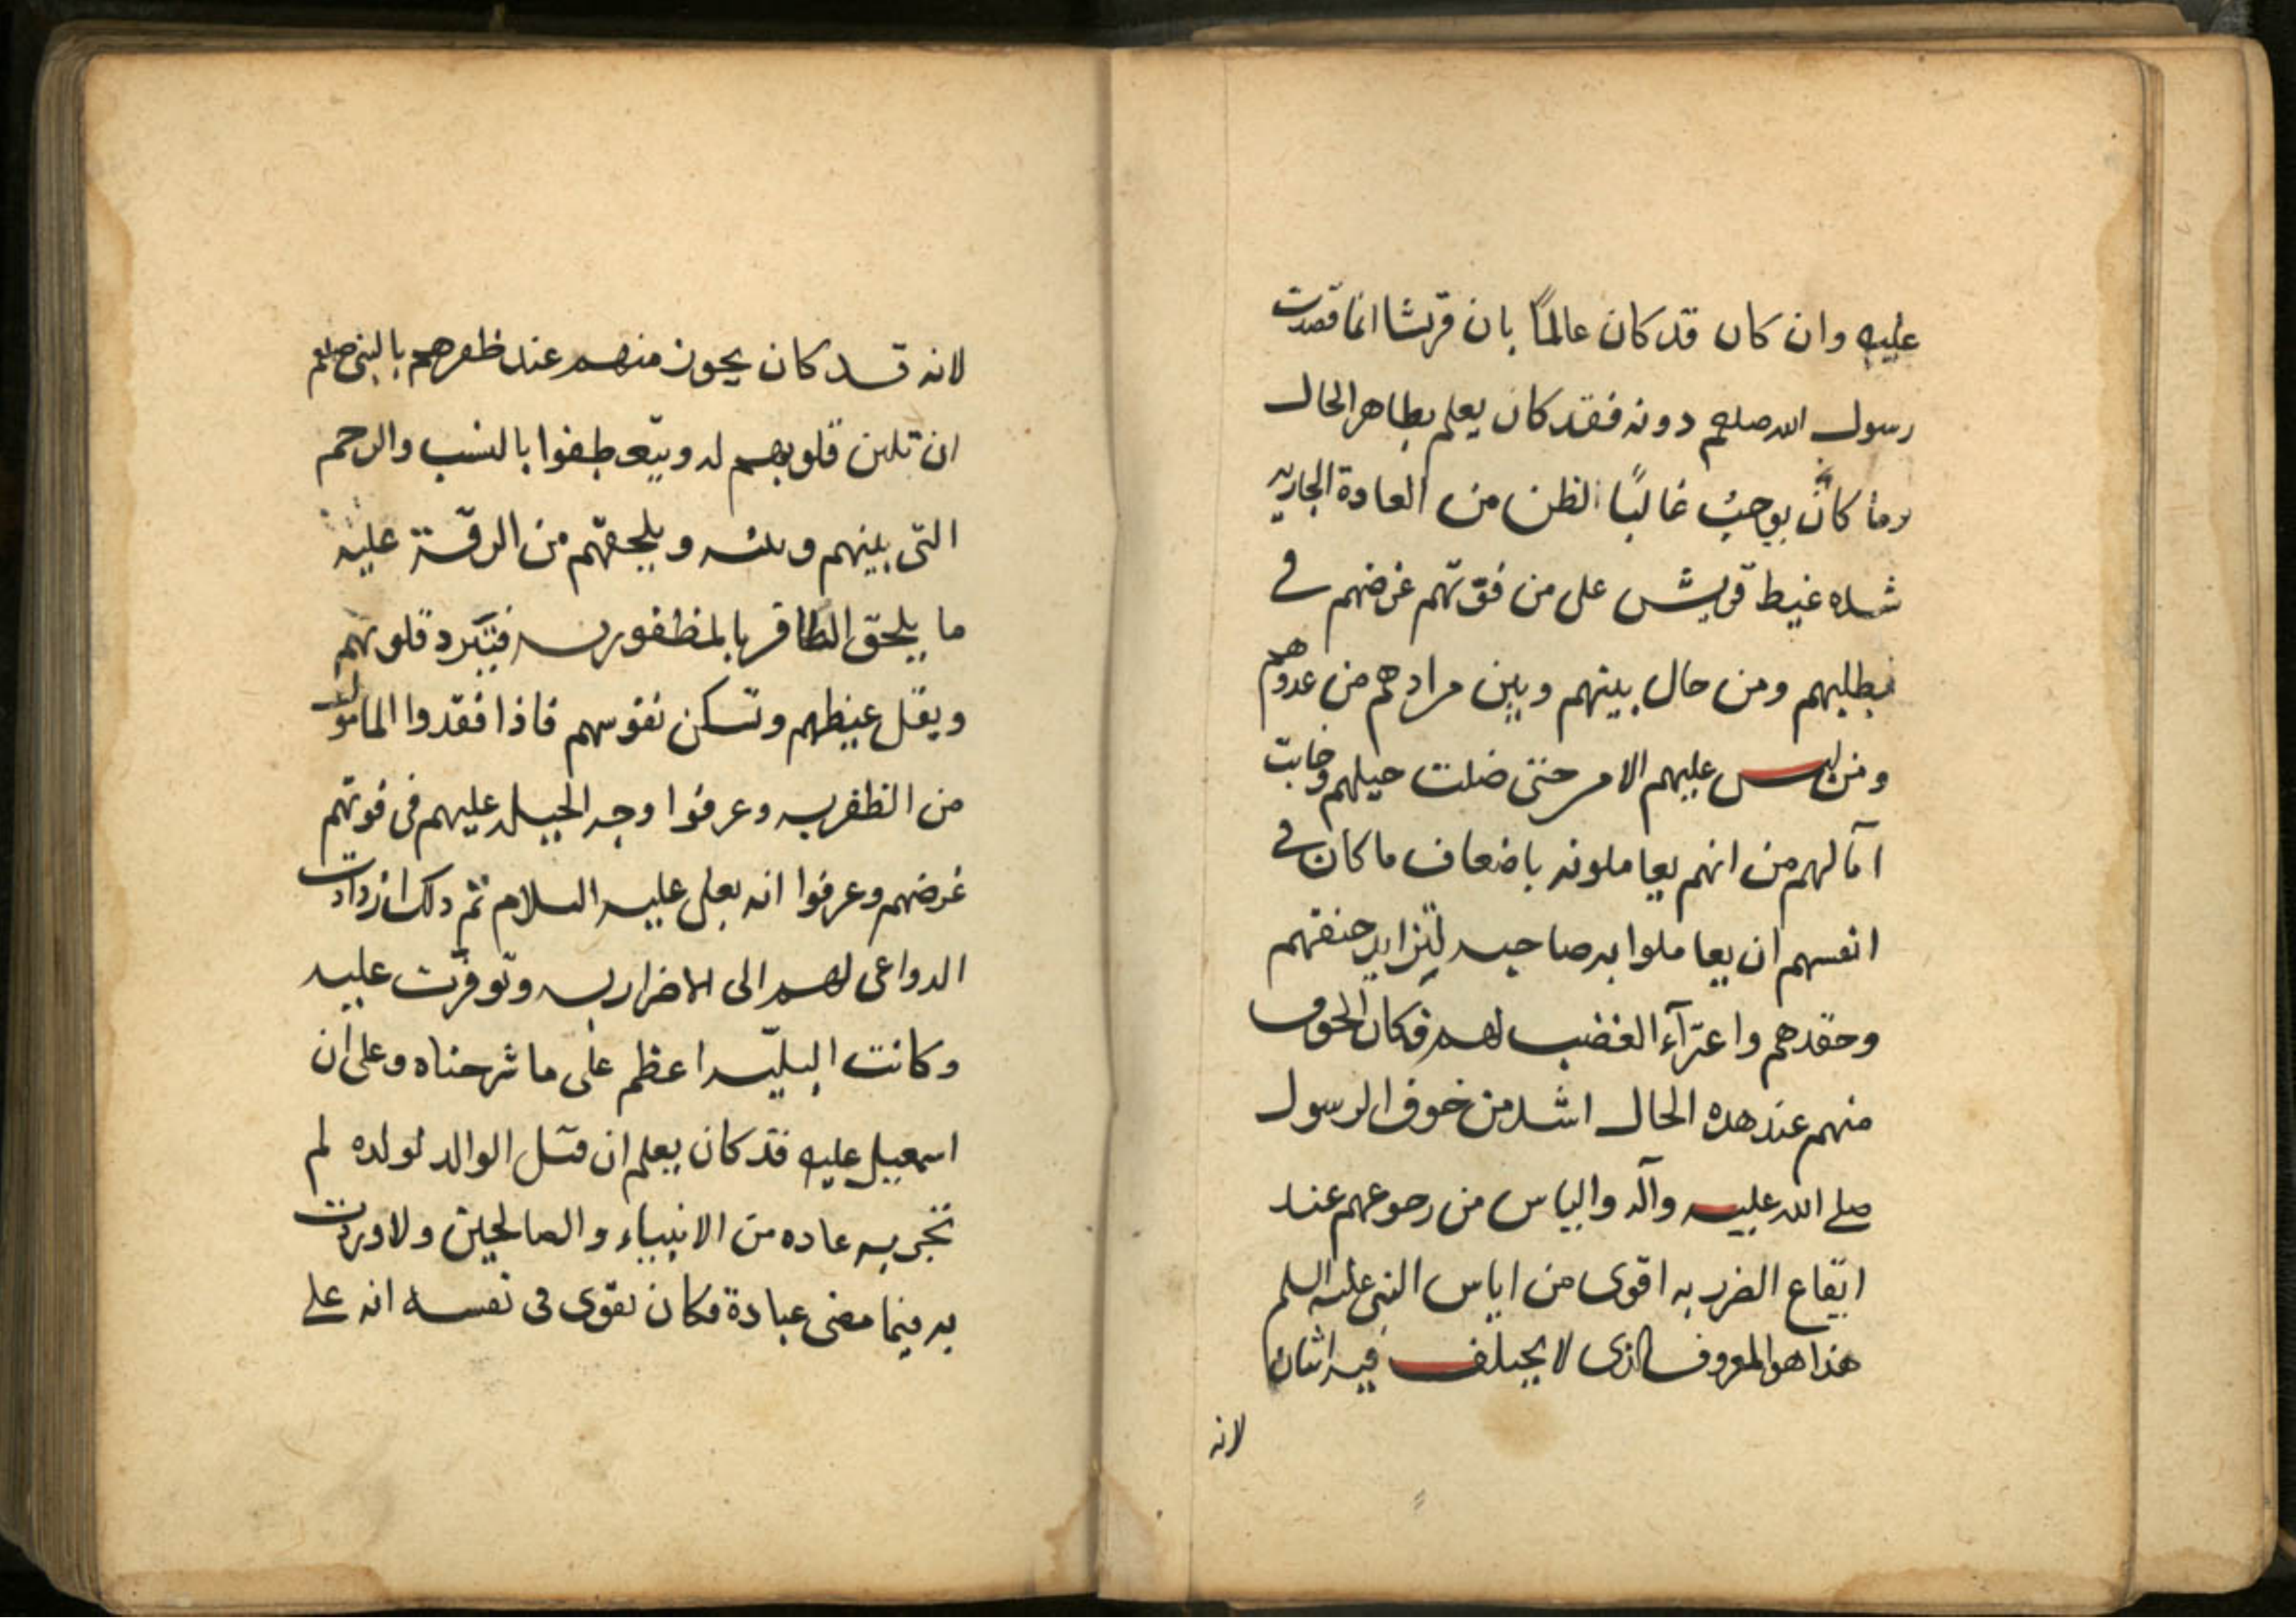 عليه وان كان قد كان عالمًا بان قريشا انما قصدت
رسول الله صلعم دونه فقد كان يعلم بظاهر الحال
وما كان يوجب غالبًا الظن من العادة الجاريه
شده غيظ قريش على من فوّتهم غرضهم في
مطلبهم ومن حال بينهم وبين مرادهم من عدوهم
ومن لبس عليهم الامر حتى ضلت حيلهم وخابت
آمالهم من انهم يعاملونه باضعاف ما كان في
انفسهم ان يعاملوا به صاحبه لتزايد حنقهم
وحقدهم واعترآء الغضب لهم فكان الخوف
منهم عند هذه الحال اشد من خوف الرسول
صلى الله عليه وآله والياس من رجوعهم عند
ايقاع الضرر به اقوى من اياس النبي عليه السلم
هذا هو المعروف الذى لا يختلف فيه اثنان
لانه
لانه قد كان يجوز منهم عند ظفرهم بالنبي صلعم
ان تلين قلوبهم له ويتعطفوا بالنسب والرحم
التي بينهم وبينه ويلحقهم من الرقّة عليه
ما يلحق الظافر بالمظفور به فتبرد قلوبهم
ويقل غيظهم وتسكن نفوسهم فاذا فقدوا المامول
من الظفر به وعرفوا وجه الحيله عليهم فى فوتهم
غرضهم وعرفوا انه بعلى عليه السلام تم ذلك ازدادت
الدواعى لهم الى الاضرار به وتوفرت عليه
وكانت البليّه اعظم على ما شرحناه وعلى ان
اسمعيل عليه قد كان يعلم ان قتل الوالد لولده لم
تجر به عاده من الانبياء والصالحين ولا وردت
به فيما مضى عبادة فكان يقوى فى نفسه انه على